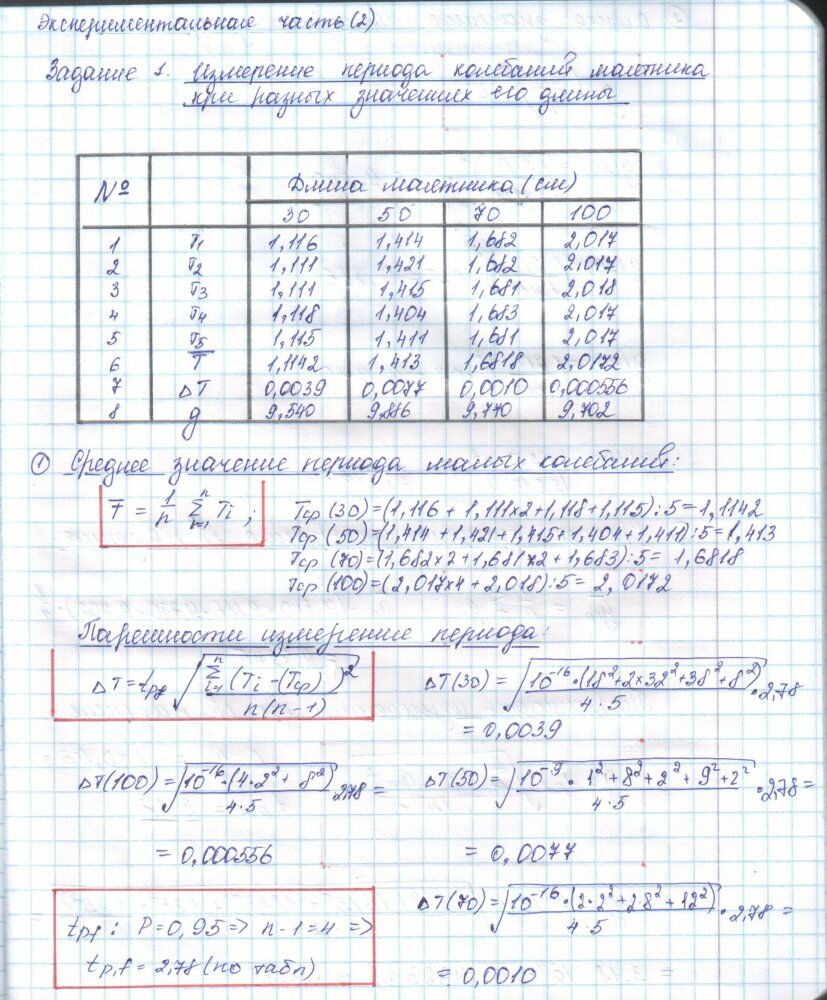 Экспериментальная часть (2)
Задание 1. Измерение периода колебаний маятника
при разных значениях его длины
№ Длина маятника (см)
30 50 70 100
1 T1 1,116 1,414 1,682 2,017
2 T2 1,111 1,421 1,682 2,017
3 T3 1,111 1,415 1,681 2,018
4 T4 1,118 1,404 1,683 2,017
5 T5 1,115 1,411 1,681 2,017
6 T̅ 1,1142 1,413 1,6818 2,0172
7 ΔT 0,0039 0,0077 0,0010 0,000556
8 g 9,540 9,886 9,770 9,702
① Среднее значение периода малых колебаний:
T̅ = 1/n Σ Ti ; Tср (30) = (1,116 + 1,111×2 + 1,118 + 1,115) : 5 = 1,1142
Tср (50) = (1,414 + 1,421 + 1,415 + 1,404 + 1,411) : 5 = 1,413
Tср (70) = (1,682×2 + 1,681×2 + 1,683) : 5 = 1,6818
Tср (100) = (2,017×4 + 2,018) : 5 = 2,0172
Парешности измерение периода:
ΔT = tpf √(Σ (Ti - (Tср))² / n(n-1)) ΔT(30) = √(10⁻¹⁶ · (18² + 2×32² + 38² + 8²) / 4·5) · 2,78
= 0,0039
ΔT(100) = √(10⁻¹⁶ · (4·2² + 8²) / 4·5) · 2,78 = ΔT(50) = √(10⁻⁹ · 1² + 8² + 2² + 9² + 2² / 4·5) · 2,78 =
= 0,000556 = 0,0077
tpf : P = 0,95 => n-1 = 4 => ΔT(70) = √(10⁻¹⁶ · (2·2² + 2·8² + 12²) / 4·5) · 2,78 =
tp,f = 2,78 (по табл) = 0,0010